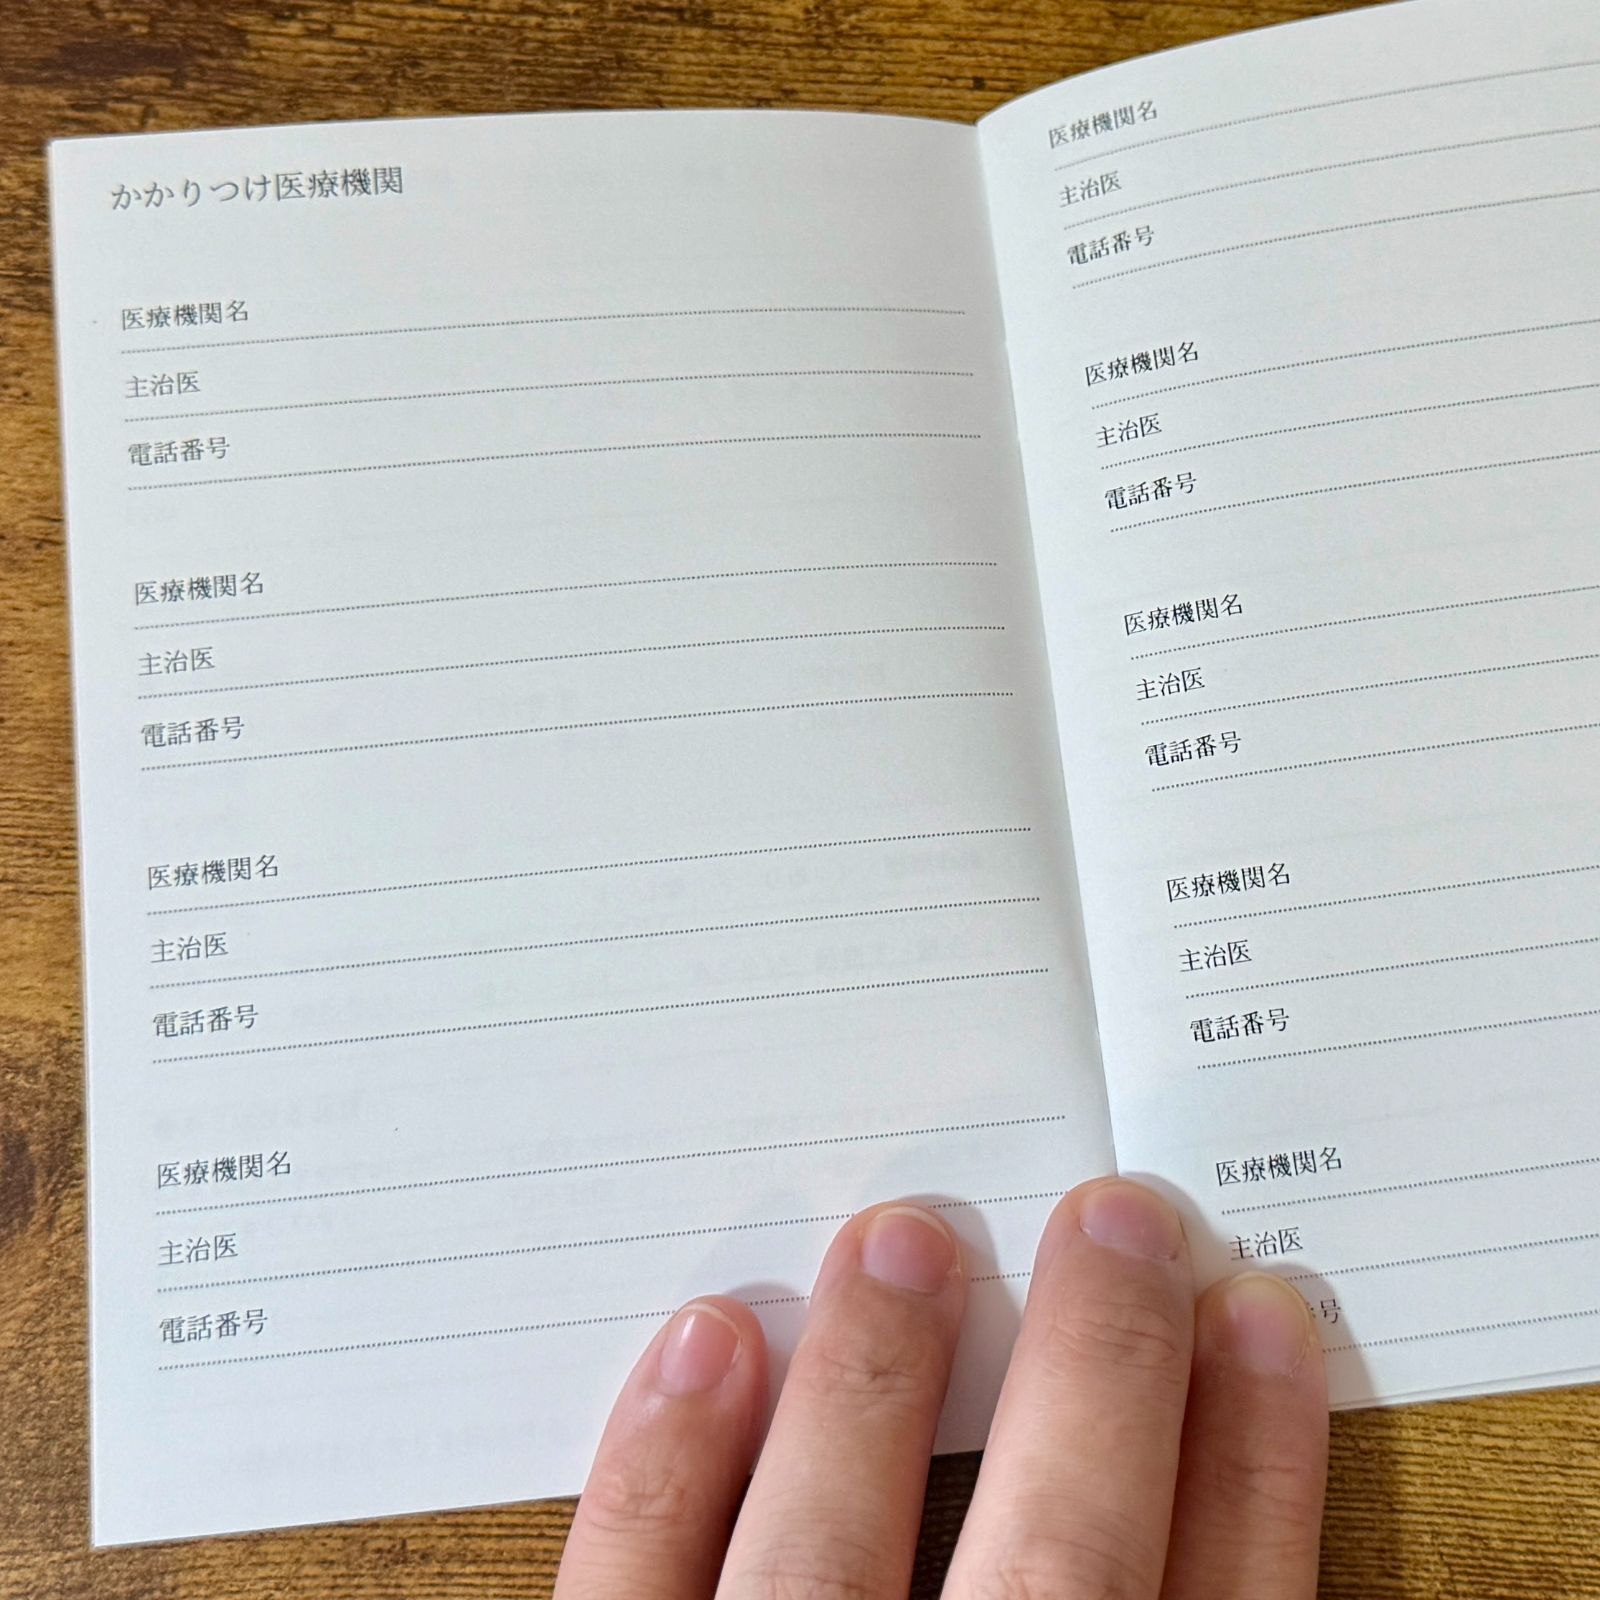 かかりつけ医療機関
医療機関名
主治医
電話番号
医療機関名
主治医
電話番号
医療機関名
主治医
電話番号
医療機関名
主治医
電話番号
医療機関名
主治医
電話番号
医療機関名
主治医
電話番号
医療機関名
主治医
電話番号
医療機関名
主治医
電話番号
医療機関名
主治医
号